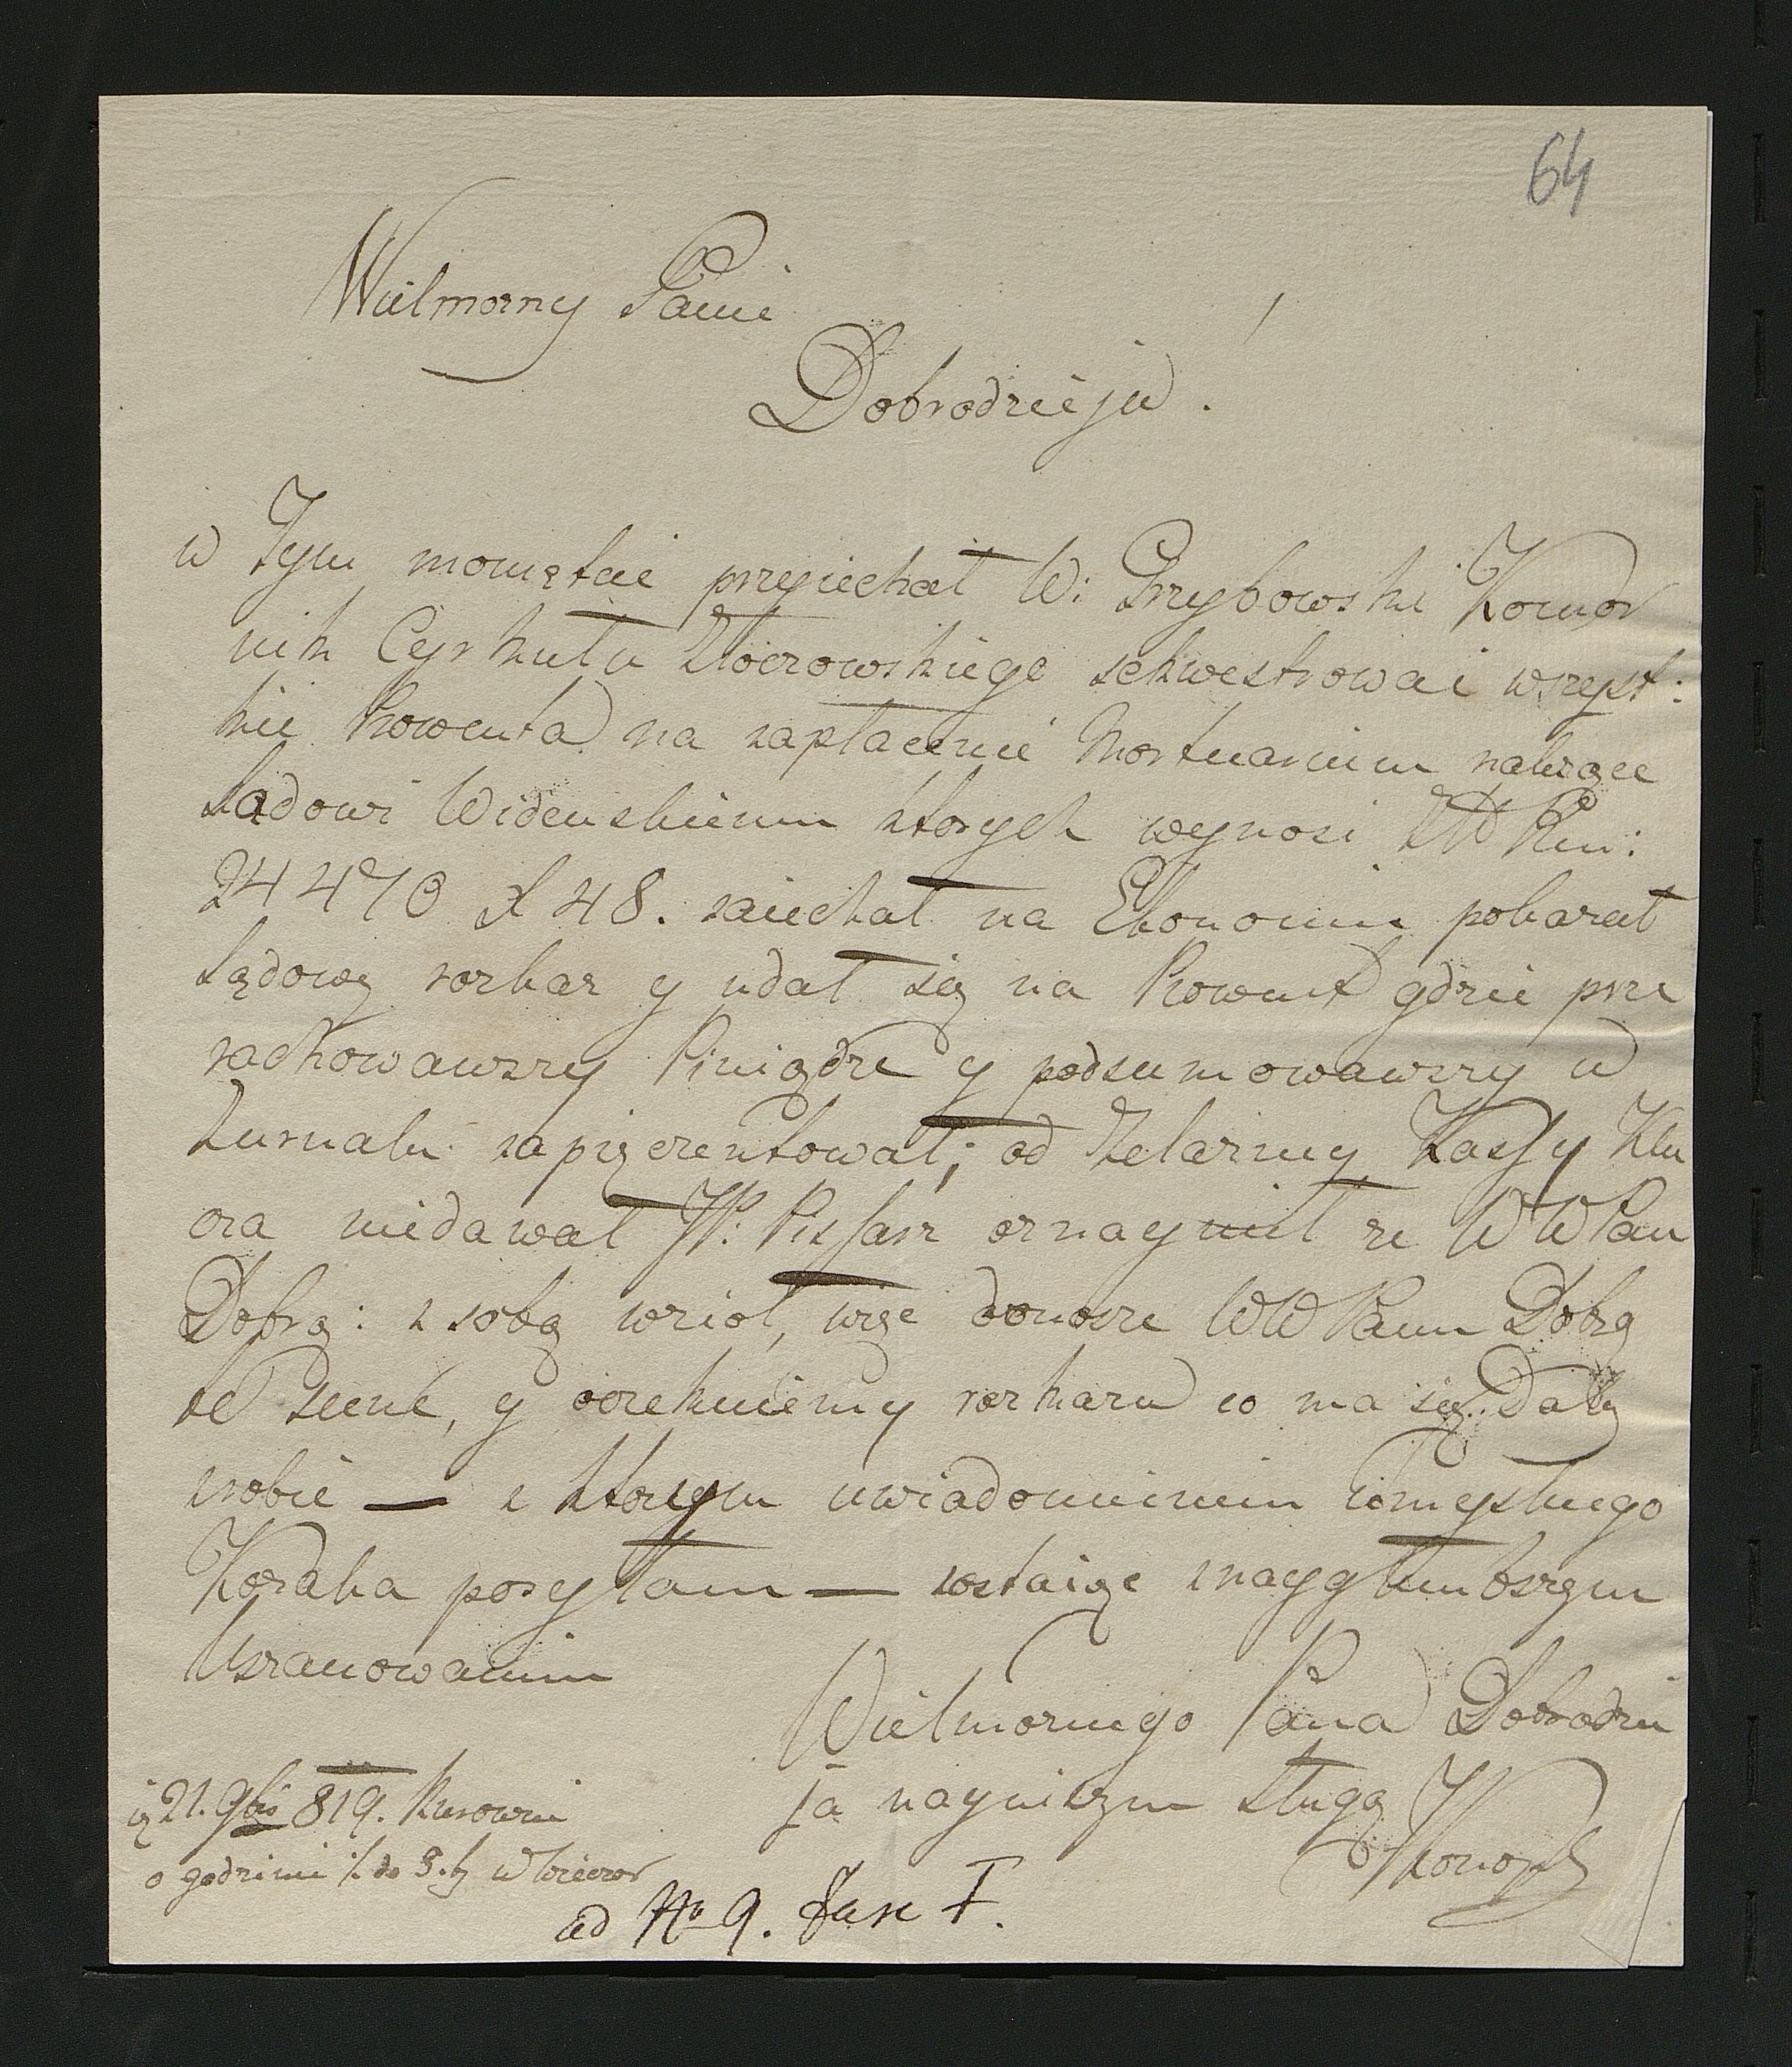 64
Wielmozny Panie
Dobrodzieju !
w Tym momętcie przyiechał W: Przybowski Komor
nik Cyrkułu Złoczowskiego sekwestrować wszyst:
kie Prowenta na zapłacenie Mortuarium należące
Sądowi Widenskiemu ktorych wynosi
24470 x 48. zaiechał na Ekonomie pokazał
Sądowy rozkaz y udał się na Prowent gdzie prze
rachowawszy Piniądze y podsumowawszy w
Zurnalu zapięczentował; od Żelazney Kassy Klu
cza niedawał JP. Pissarz oznaymił ze WWPan
Dobrą: z sobą wzioł, więc donosze WWPanu Dobrą
te scene, y oczekuiemy rozkazu co ma się Daley
robic — z ktorym uwiadomieniem umyslnego
Kozaka posyłam — zostaiąc z nayglembszym
Uszanowaniem
Wielmoznego Pana Dobrodzie
ja nayniszym sługą
Konop
21. 9bis 819. Kurowice
o godzinie do w wieczor
ad No 9. Fasc I.